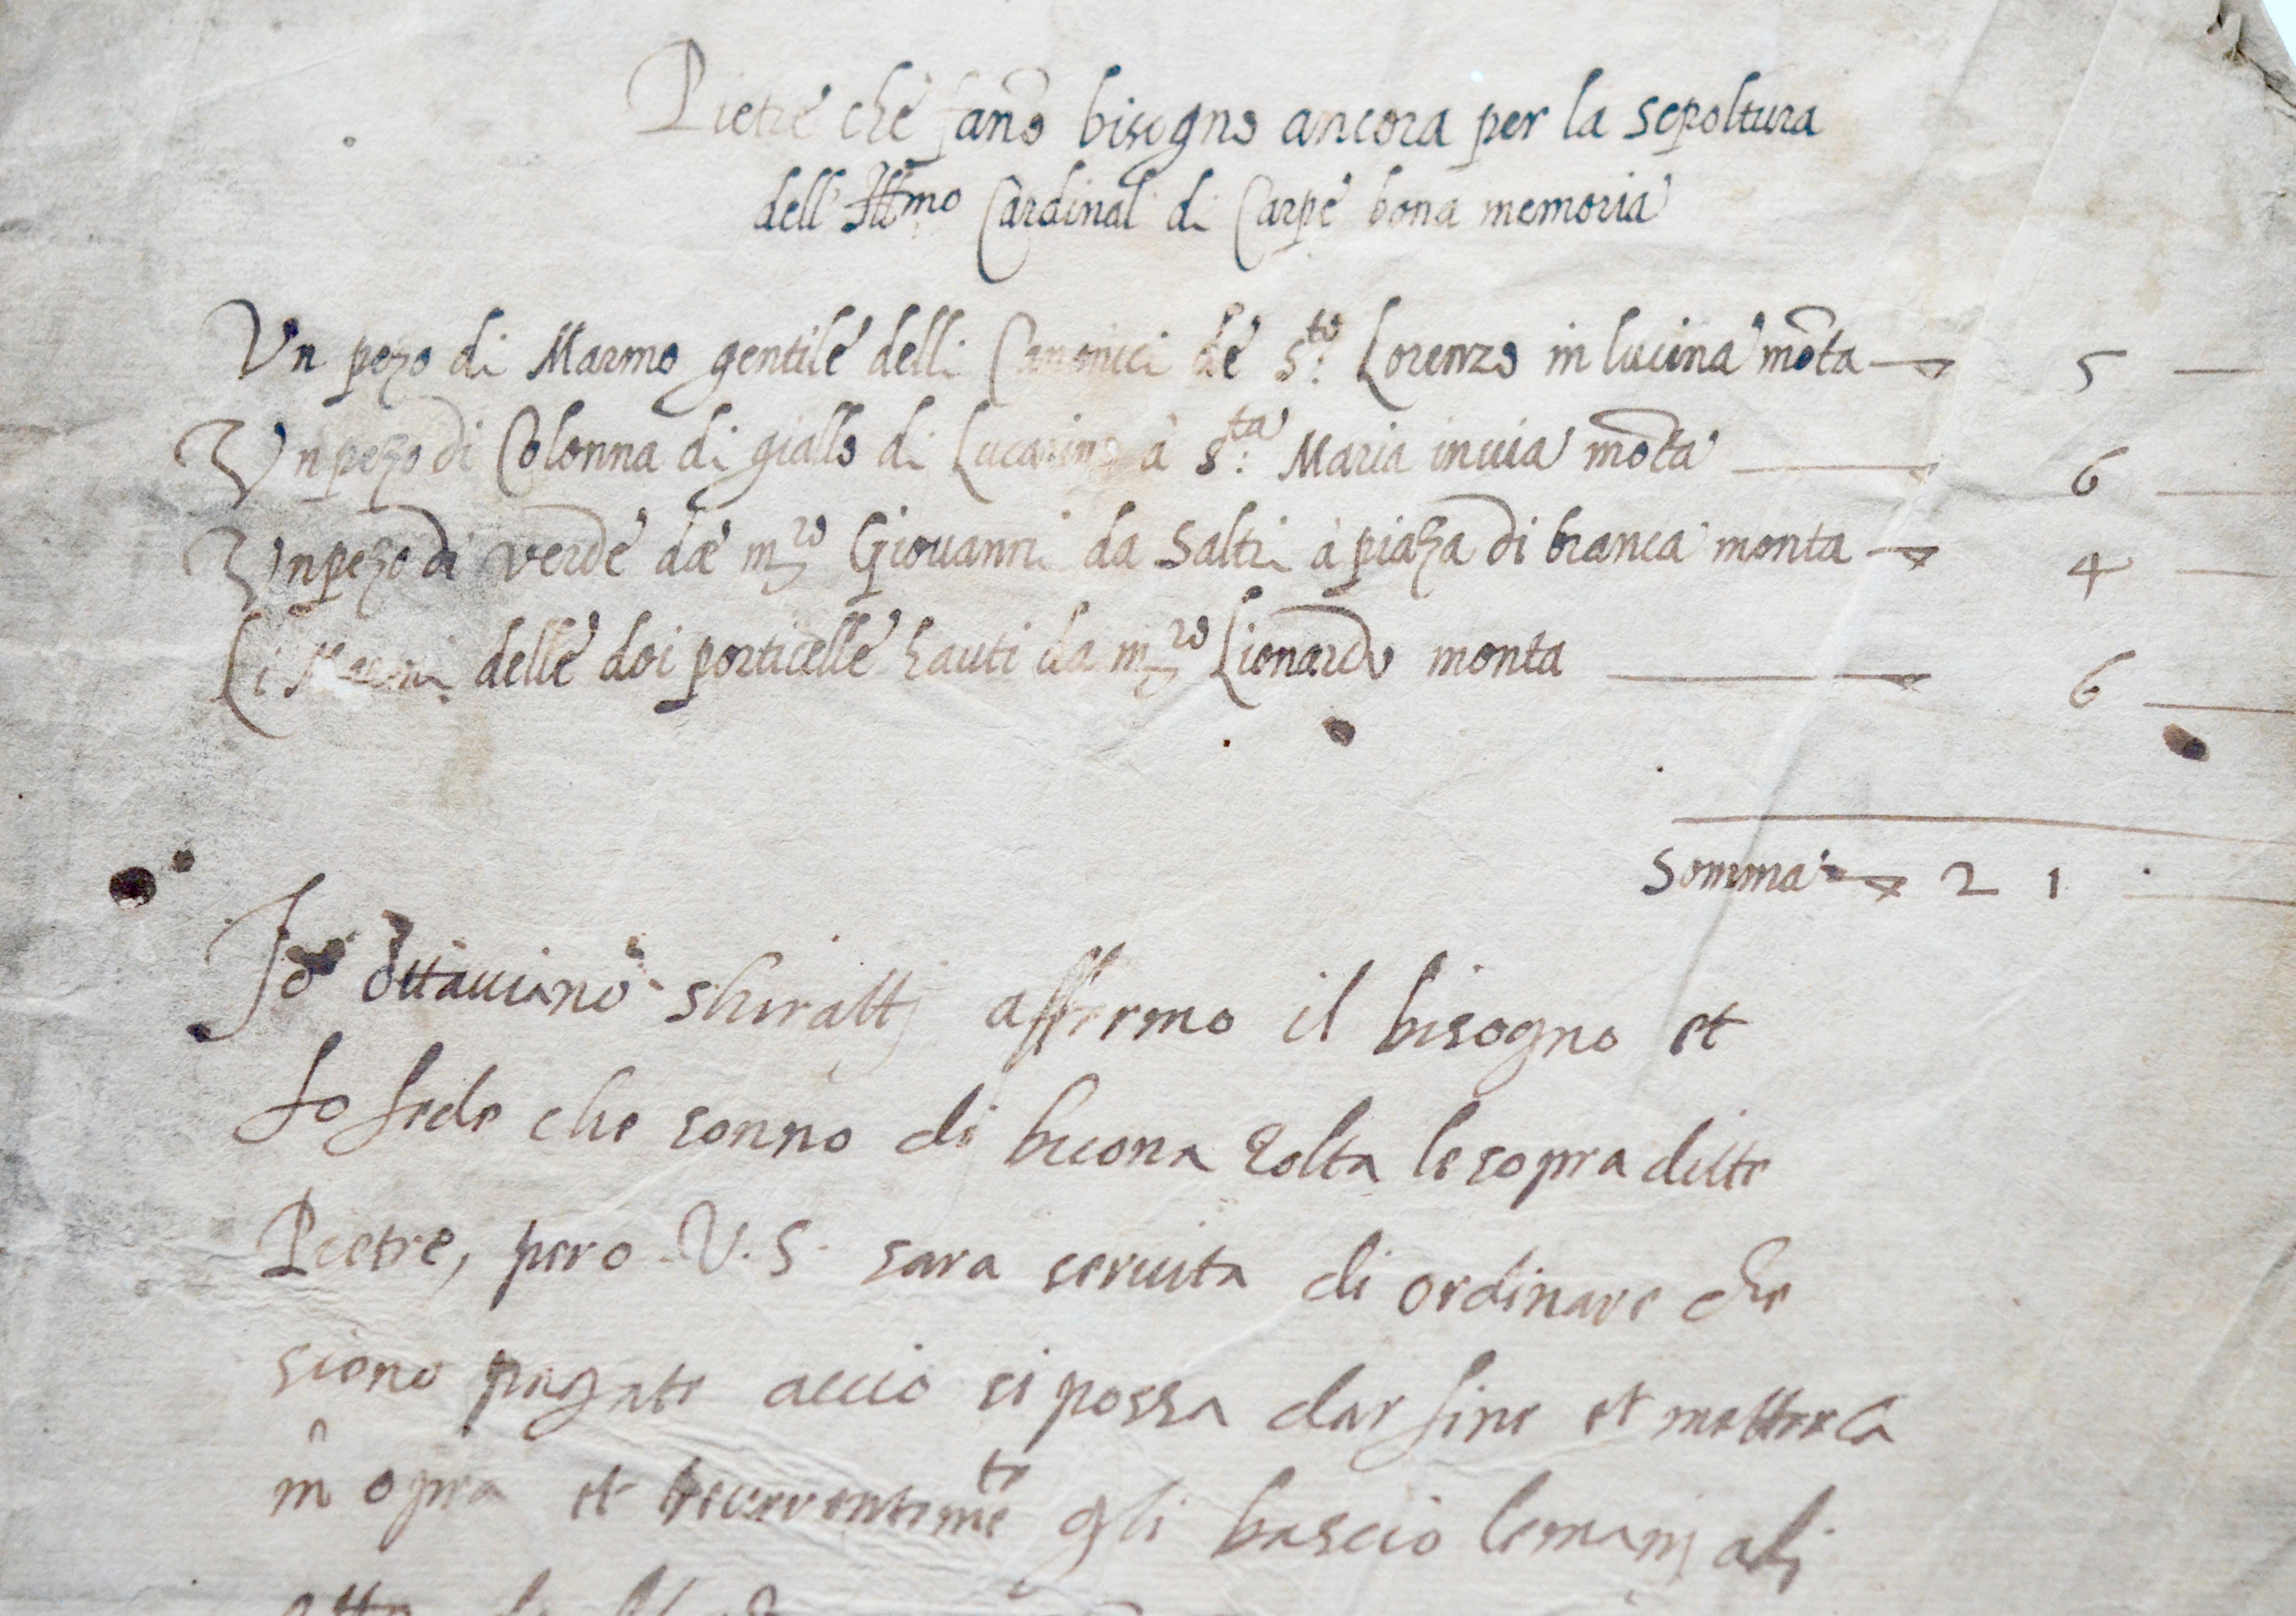 Pietre che fano bisogno ancora per la sepoltura
dell Ill.mo Cardinal di Carpe bona memoria
Un pezo di Marmo gentile delli Canonici de s.to Lorenzo in lucina mota 5
Un pezo di Colonna di giallo di Lucarino à s.ta Maria in via mota 6
Un pezo di verde da m.ro Giouanni da Salti à piaza di branca monta 4
Li Marmi delle doi porticelle hauti da m.ro Lionardo monta 6
Somma 21
Io Ottauiano affermo il bisogno et
fo fede che sonno di buona le sopra ditte
Pietre, pero V.S. sara seruita di ordinare che
siono pagate accio si possa dar fine et metterla
in opra et gli bascio le manj alj